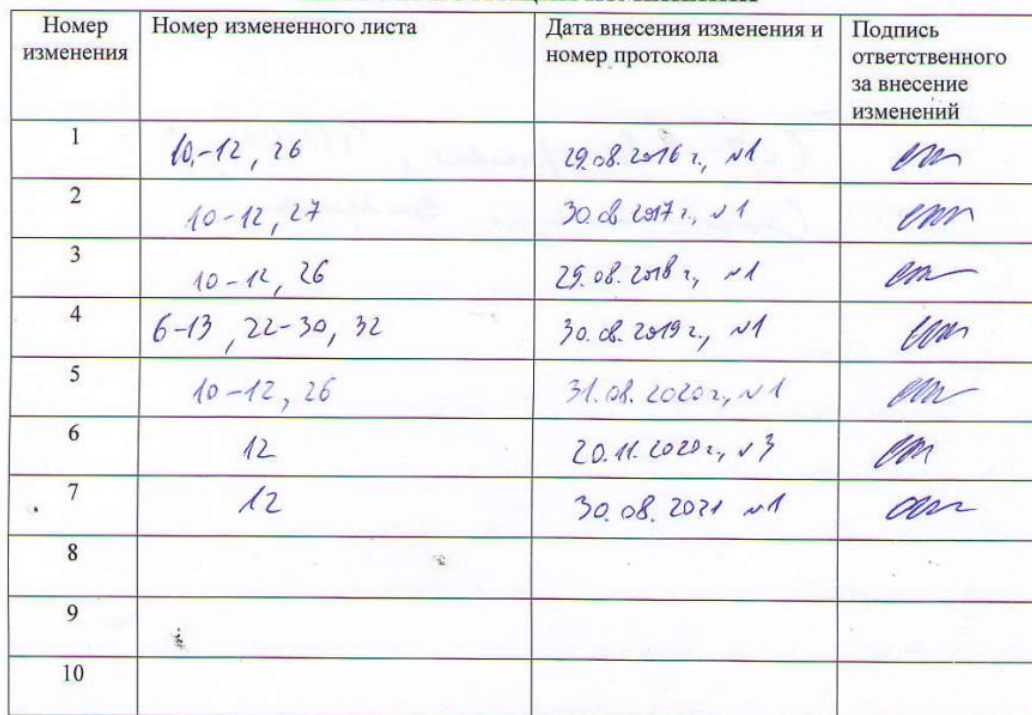 Номер изменения | Номер измененного листа | Дата внесения изменения и номер протокола | Подпись ответственного за внесение изменений
1 | 10-12, 26 | 29.08.2016 г., №1
2 | 10-12, 27 | 30.08.2017 г., №1
3 | 10-12, 26 | 29.08.2018 г., №1
4 | 6-13, 22-30, 32 | 30.08.2019 г., №1
5 | 10-12, 26 | 31.08.2020 г., №1
6 | 12 | 20.11.2020 г., №3
7 | 12 | 30.08.2021 №1
8
9
10